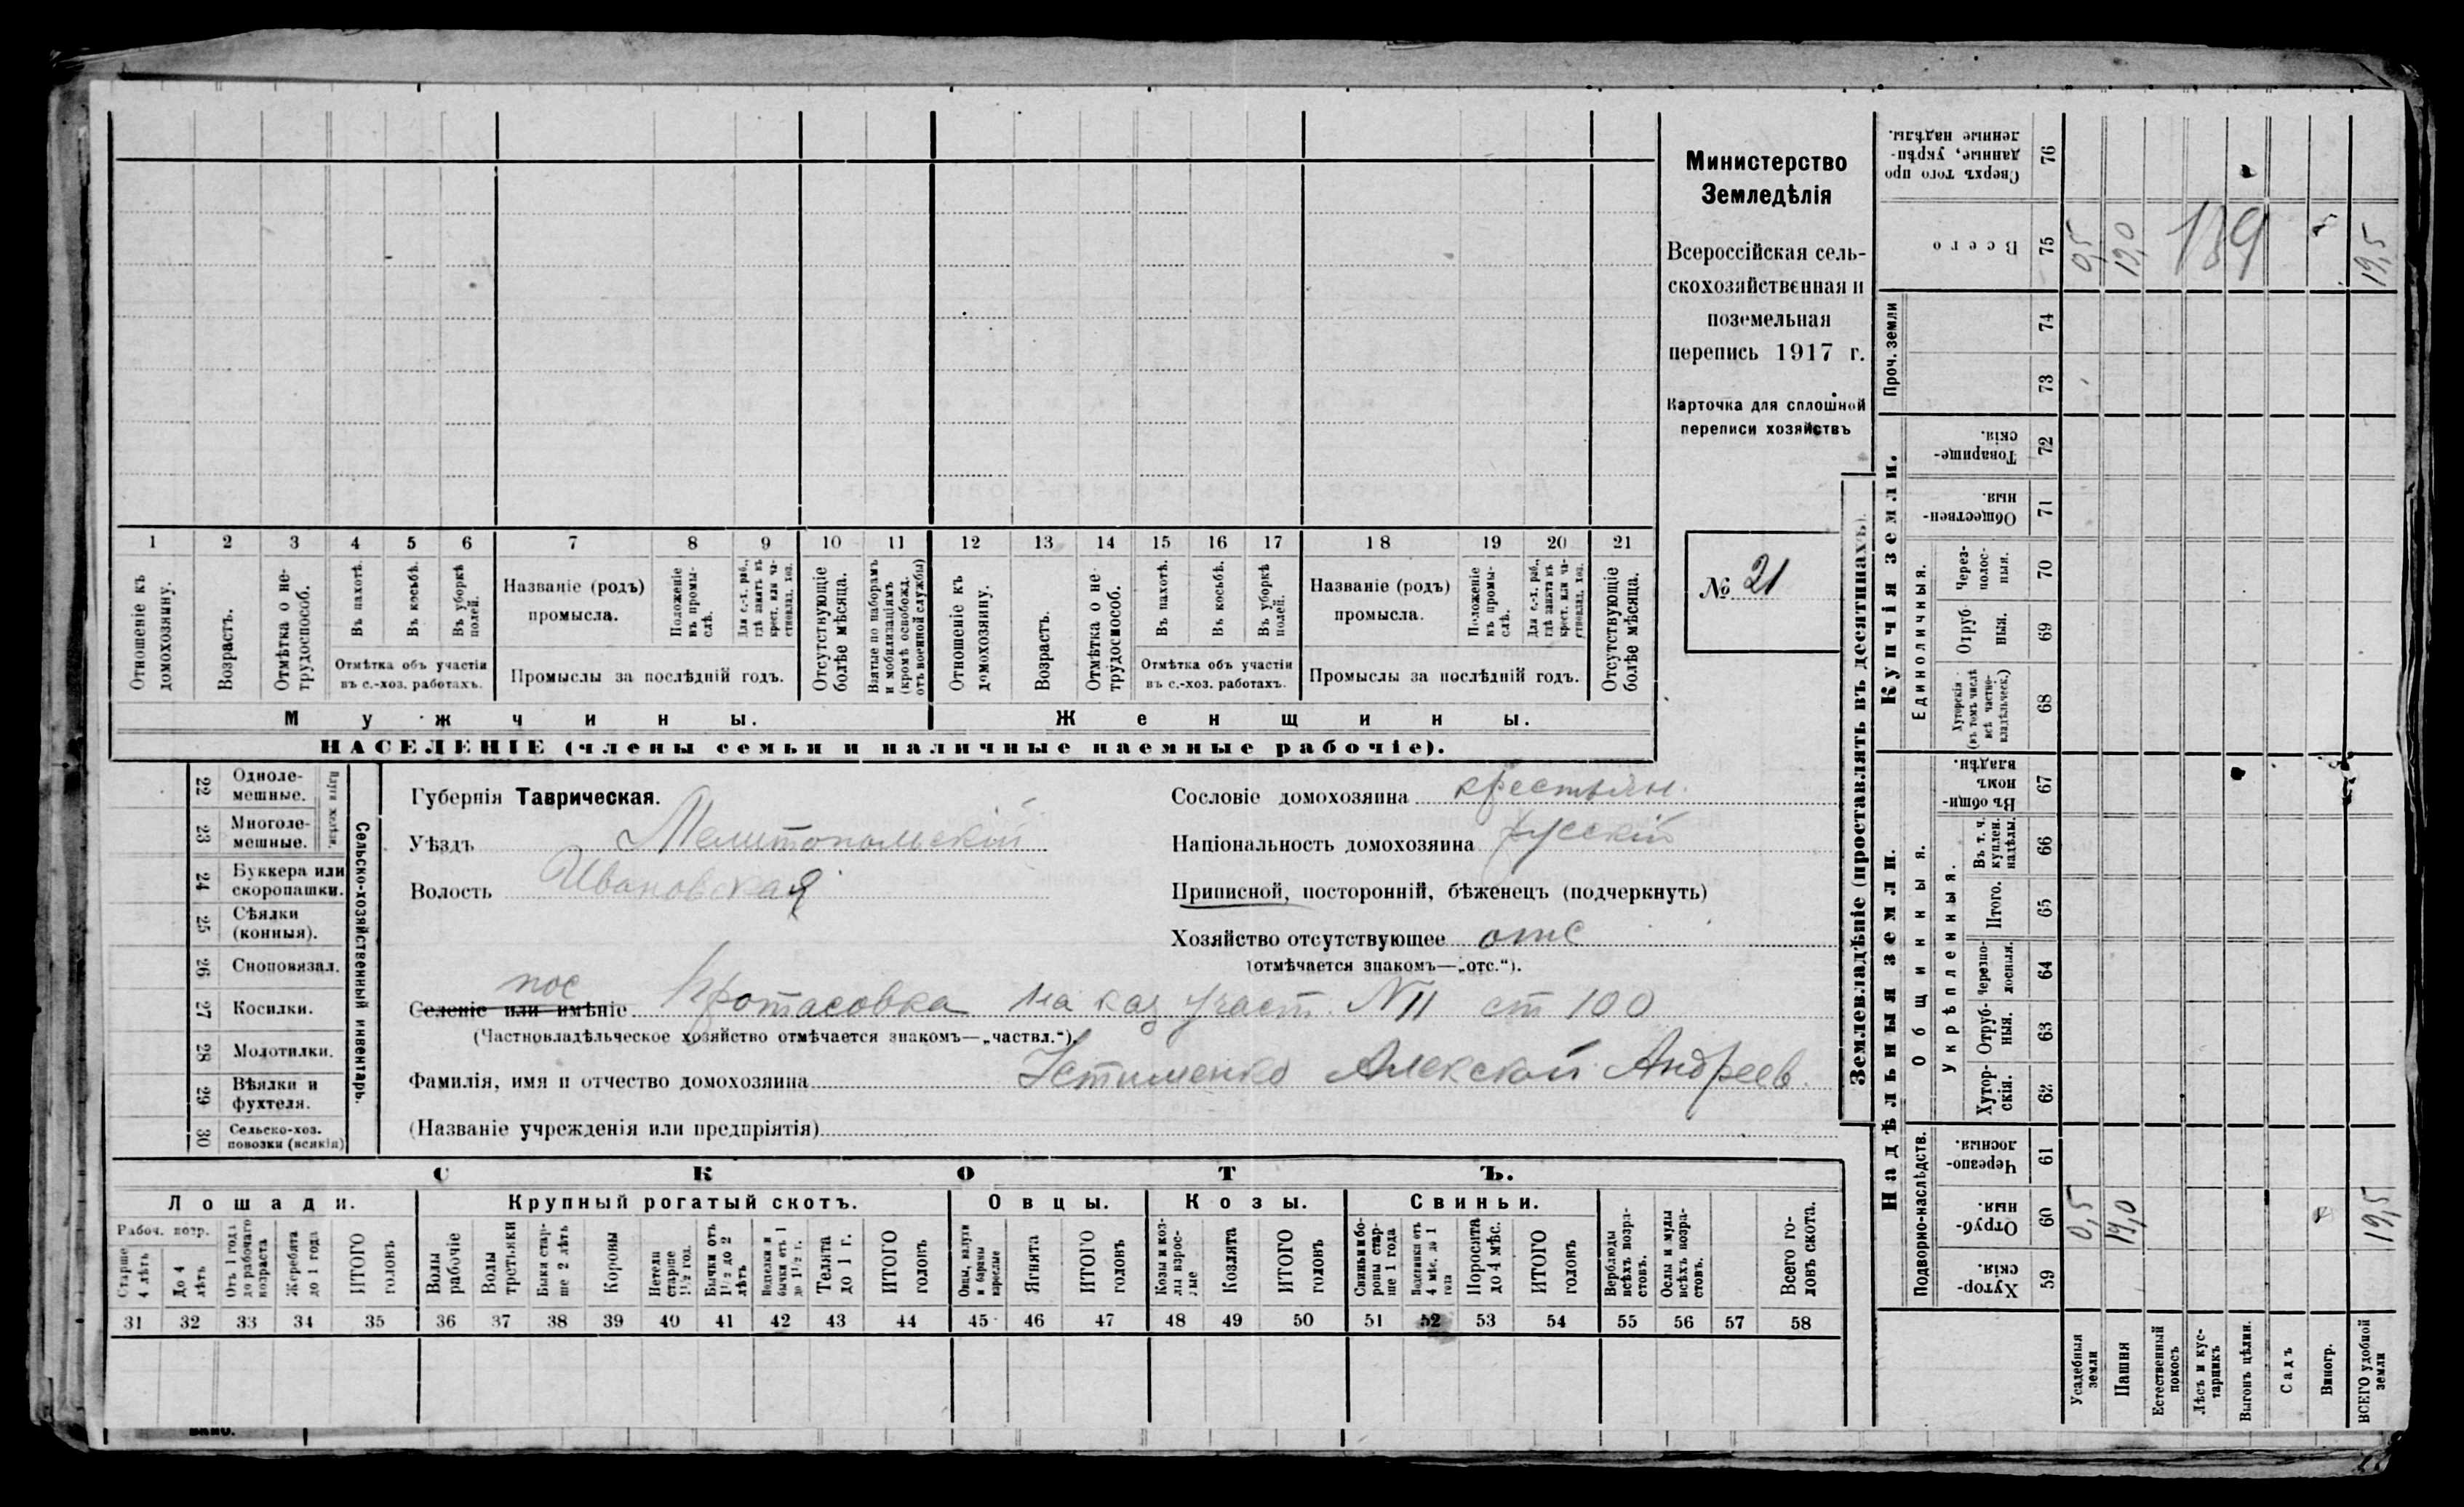 Министерство
Земледѣлія
Всероссійская сель-
скохозяйственная и
поземельная
перепись 1917 г.
Карточка для сплошной
переписи хозяйствъ
№ 21
1 2 3 4 5 6 7 8 9 10 11 12 13 14 15 16 17 18 19 20 21
Отношеніе къ домохозяину.
Возрастъ.
Отмѣтка о не-трудоспособ.
Въ пахотѣ.
Въ косьбѣ.
Въ уборкѣ полей.
Отмѣтка объ участіи
въ с.-хоз. работахъ.
Названіе (родъ)
промысла.
Положеніе въ промы-слѣ.
Для с.-х. раб., гдѣ занятъ въ крест. или ча-стновлад. хоз.
Промыслы за послѣдній годъ.
Отсутствующіе болѣе мѣсяца.
Взятые по наборамъ и мобилизаціямъ (кромѣ освобожд. отъ военной службы)
Отношеніе къ домохозяину.
Возрастъ.
Отмѣтка о не-трудоспособ.
Въ пахотѣ.
Въ косьбѣ.
Въ уборкѣ полей.
Отмѣтка объ участіи
въ с.-хоз. работахъ.
Названіе (родъ)
промысла.
Положеніе въ промы-слѣ.
Для с.-х. раб., гдѣ занята въ крест. или ча-стновлад. хоз.
Промыслы за послѣдній годъ.
Отсутствующіе болѣе мѣсяца.
Мужчины.
Женщины.
НАСЕЛЕНІЕ (члены семьи и наличные наемные рабочіе).
22 Одноле-мешные.
23 Многоле-мешные.
Плуги желѣзн.
24 Буккера или скоропашки.
25 Сѣялки (конныя).
26 Сноповязал.
27 Косилки.
28 Молотилки.
29 Вѣялки и фухтеля.
30 Сельско-хоз. повозки (всякія)
Сельско-хозяйственный инвентарь.
Губернія Таврическая.
Уѣздъ Мелитопольскій
Волость Ивановская
Сословіе домохозяина крестьян.
Національность домохозяина русскій
Приписной, посторонній, бѣженецъ (подчеркнуть)
Хозяйство отсутствующее отс
(отмѣчается знакомъ—„отс.“).
пос
Селеніе или имѣніе Протасовка на каз участ. N 11 ст 100
(Частновладѣльческое хозяйство отмѣчается знакомъ—„частвл.“).
Фамилія, имя и отчество домохозяина Устименко Алексѣй Андреев.
(Названіе учрежденія или предпріятія)
СКОТЪ.
Лошади.
Крупный рогатый скотъ.
Овцы.
Козы.
Свиньи.
Рабоч. возр.
Старше 4 лѣтъ
До 4 лѣтъ
Отъ 1 года до рабочаго возраста
Жеребята до 1 года
ИТОГО головъ
Волы рабочіе
Волы третьяки
Быки стар-ше 2 лѣтъ
Коровы
Нетели старше 1½ год.
Бычки отъ 1½ до 2 лѣтъ
Телушки и бычки отъ 1 до 1½ г.
Телята до 1 г.
ИТОГО головъ
Овцы, валухи и бараны взрослые
Ягнята
ИТОГО головъ
Козы и коз-лы взрос-лые
Козлята
ИТОГО головъ
Свиньи и бо-ровы стар-ше 1 года
Подсвинки отъ 4 мѣс. до 1 года
Поросята до 4 мѣс.
ИТОГО головъ
Верблюды всѣхъ возра-стовъ.
Ослы и мулы всѣхъ возра-стовъ.
Всего го-ловъ скота.
31 32 33 34 35 36 37 38 39 40 41 42 43 44 45 46 47 48 49 50 51 52 53 54 55 56 57 58
Землевладѣніе (проставлять въ десятинахъ).
Надѣльныя земли.
Купчія земли.
Проч. земли
Подворно-наслѣдств.
Общинныя.
Укрѣпленныя.
Единоличныя.
Сверхъ того про данные, укрѣп-ленные надѣлы. 76
Всего 75 0,5 19,0 19,5
189
74
73
Товарище-скія. 72
Обществен-ныя. 71
Через-полос-ныя. 70
Отруб ныя. 69
Хуторскія (въ томъ числѣ всѣ частно-владѣльческ.) 68
Въ общи-номъ владѣн. 67
Въ т. ч. куплен. надѣлы. 66
Итого. 65
Черезпо-лосныя. 64
Отруб-ныя. 63
Хутор-скія. 62
Черезпо-лосныя. 61
Отруб-ныя. 60 0,5 19,0 19,5
Хутор-скія. 59
Усадебныя земли
Пашня
Естественный покосъ
Лѣсъ и кус-тарникъ
Выгонъ цѣлин.
Садъ
Виногр.
ВСЕГО удобной земли